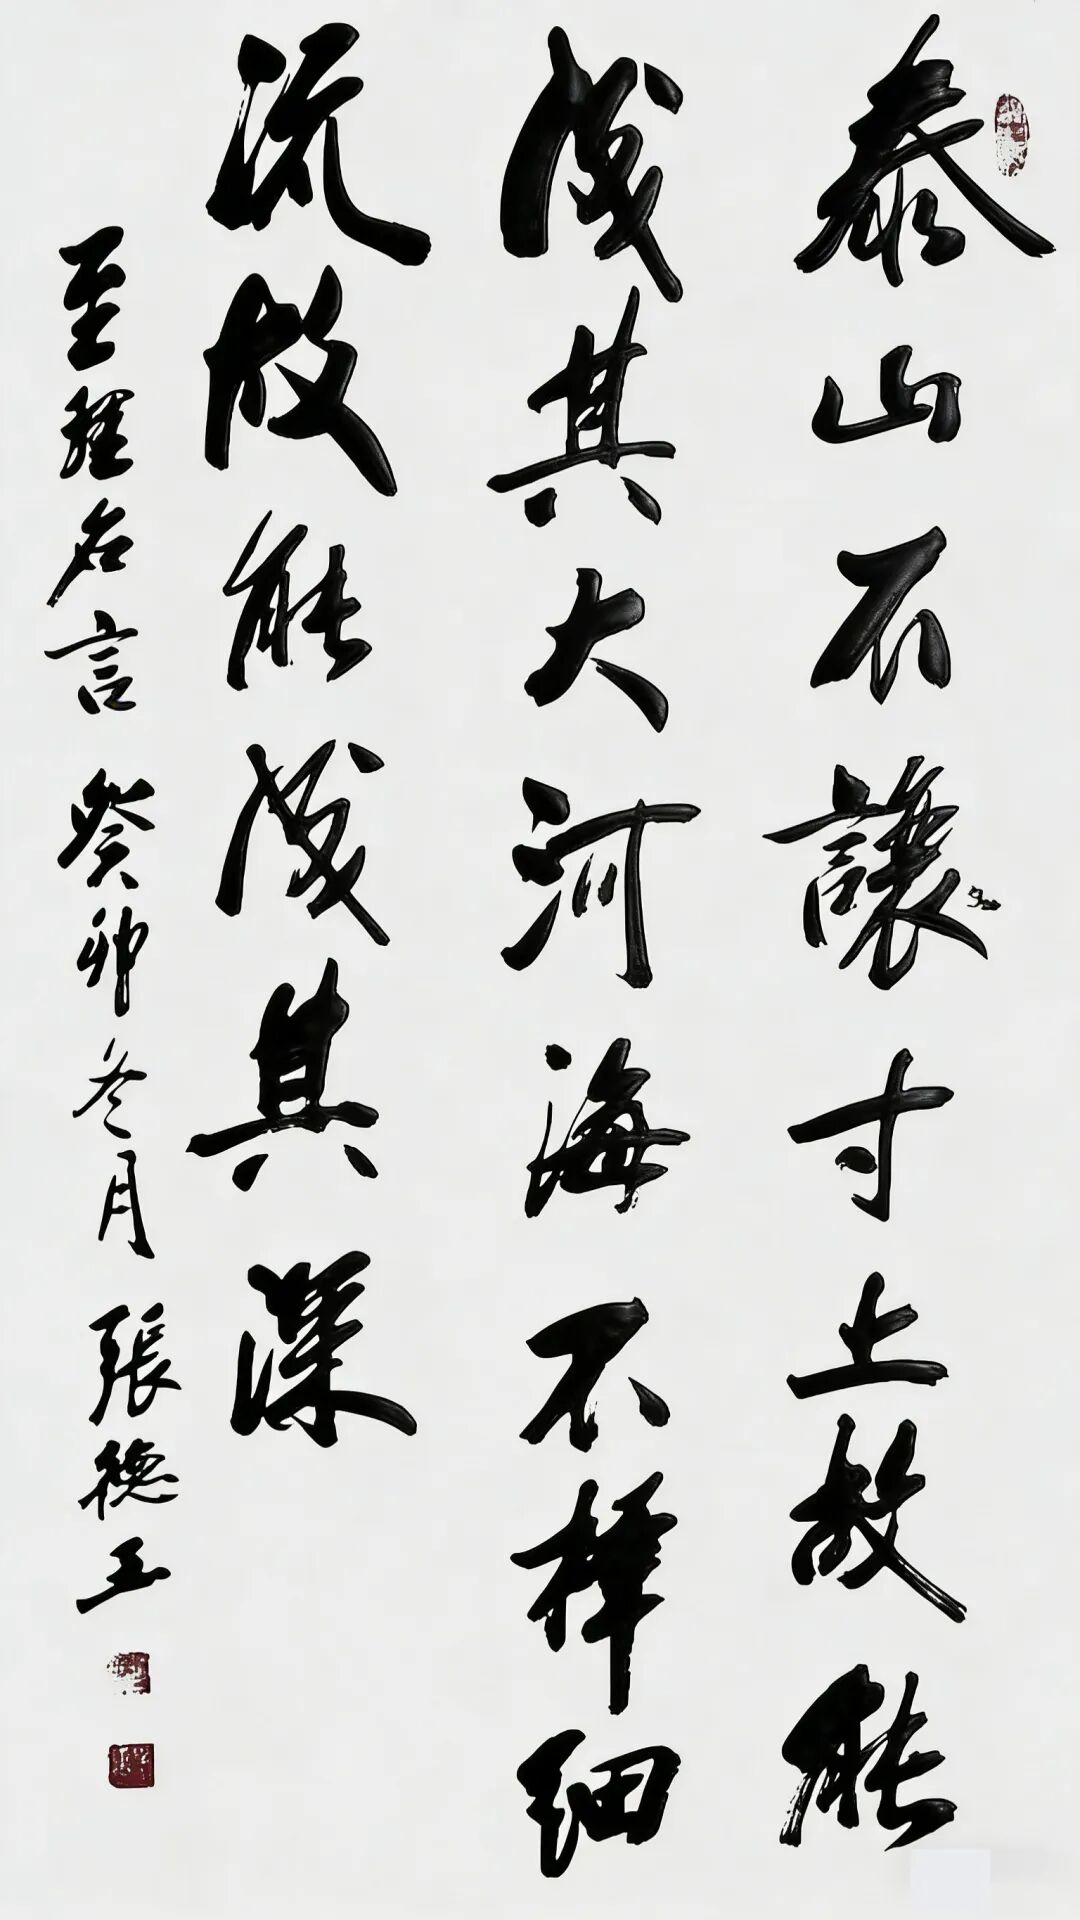 泰山不讓寸土故能
成其大河海不择细
流故能成其深
至理名言 癸卯冬月 張德玉